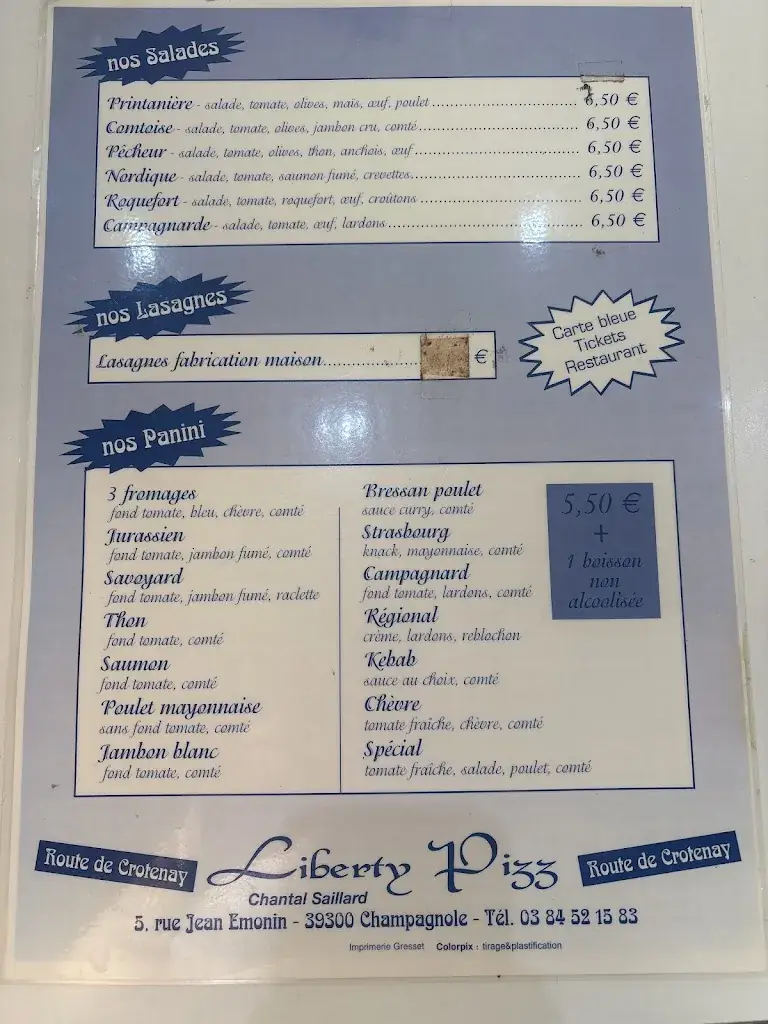 nos Salades
Printanière - salade, tomate, olives, maïs, œuf, poulet.............................. 6,50 €
Comtoise - salade, tomate, olives, jambon cru, comté................................. 6,50 €
Pêcheur - salade, tomate, olives, thon, anchois, œuf.................................. 6,50 €
Nordique - salade, tomate, saumon fumé, crevettes.................................. 6,50 €
Roquefort - salade, tomate, roquefort, œuf, croûtons ................................. 6,50 €
Campagnarde - salade, tomate, œuf, lardons........................................ 6,50 €
nos Lasagnes
Lasagnes fabrication maison.................... €
Carte bleue
Tickets
Restaurant
nos Panini
3 fromages
fond tomate, bleu, chèvre, comté
Jurassien
fond tomate, jambon fumé, comté
Savoyard
fond tomate, jambon fumé, raclette
Thon
fond tomate, comté
Saumon
fond tomate, comté
Poulet mayonnaise
sans fond tomate, comté
Jambon blanc
fond tomate, comté
Bressan poulet
sauce curry, comté
Strasbourg
knack, mayonnaise, comté
Campagnard
fond tomate, lardons, comté
Régional
crème, lardons, reblochon
Kebab
sauce au choix, comté
Chèvre
tomate fraîche, chèvre, comté
Spécial
tomate fraîche, salade, poulet, comté
5,50 €
+
1 boisson
non
alcoolisée
Route de Crotenay
Liberty Pizz
Route de Crotenay
Chantal Saillard
5, rue Jean Emonin - 39300 Champagnole - Tél. 03 84 52 15 83
Imprimerie Gresset Colorpix : tirage&plastification